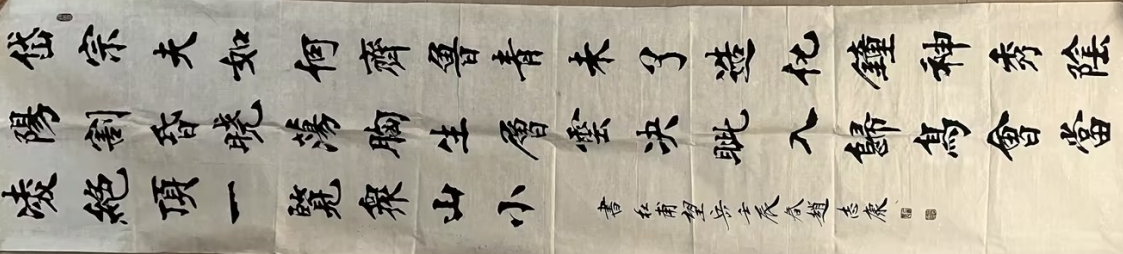 岱宗夫如何齊魯青未了造化鐘神秀陰
陽割昏曉蕩胸生層雲决眦入歸鳥會當
凌絕頂一覽衆山小
書杜甫望岳壬辰秋趙志康